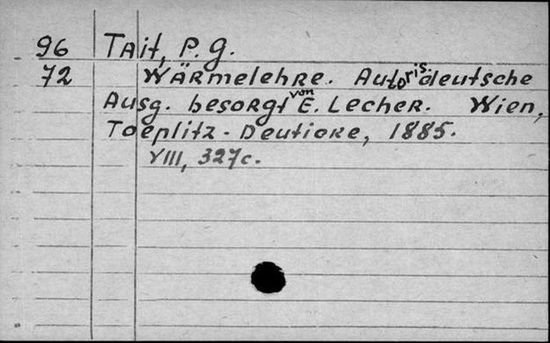 96 Tait, P. G.
72 Wärmelehre. Autoris. deutsche
Ausg. besorgt von E. Lecher. Wien,
Toeplitz - Deuticke, 1885.
VIII, 327c.